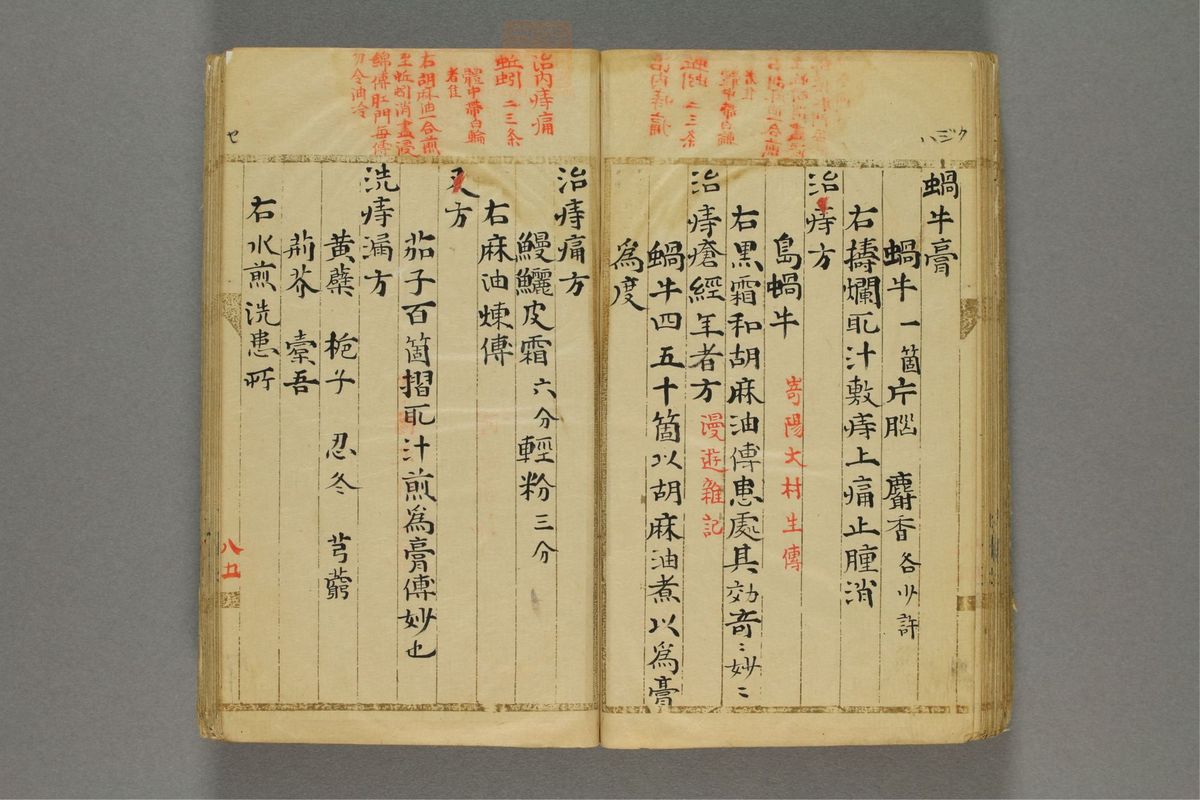 蝸牛膏
蝸牛一箇片脳 麝香各少許
右擣爛取汁敷痔上痛止腫消
治痔方
島蝸牛 嵜陽大村生傳
右黒霜和胡麻油傳患處其効竒〻妙〻
治痔瘡經年者方 漫遊雜記
蝸牛四五十箇以胡麻油煮以為膏
為度
治内痔痛
蚯蚓 二三条
體中帶白輪
者佳
右胡麻油一合煎
至蚯蚓消盡浸
綿傳肛門每傳
勿令油冷
治痔痛方
鰻鱺皮霜六分輕粉三分
右麻油煉傳
又方
茄子百箇摺取汁煎為膏傳妙也
洗痔漏方
黃蘗 梔子 忍冬 芎藭
荊芥 橐吾
右水煎洗患所
八五